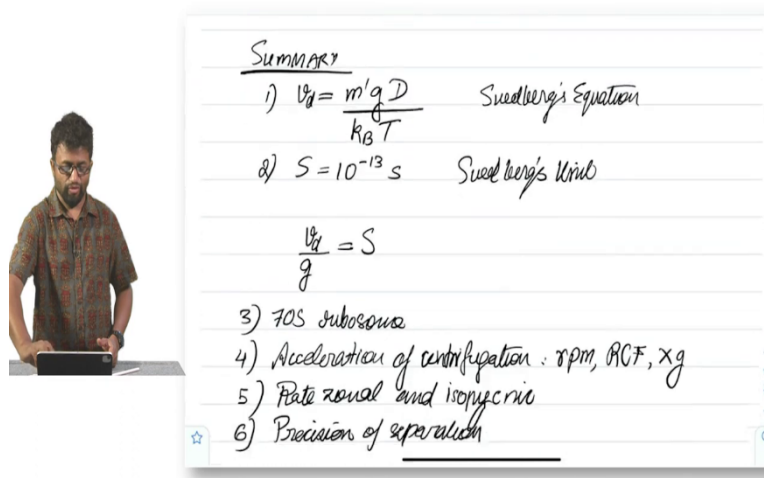 SUMMARY
1) v_d = m'gD / k_B T Svedberg's Equation
2) S = 10^-13 s Svedberg's Unit
v_d / g = S
3) 70S ribosome
4) Acceleration of centrifugation : rpm, RCF, xg
5) Rate zonal and isopycnic
6) Precision of separation